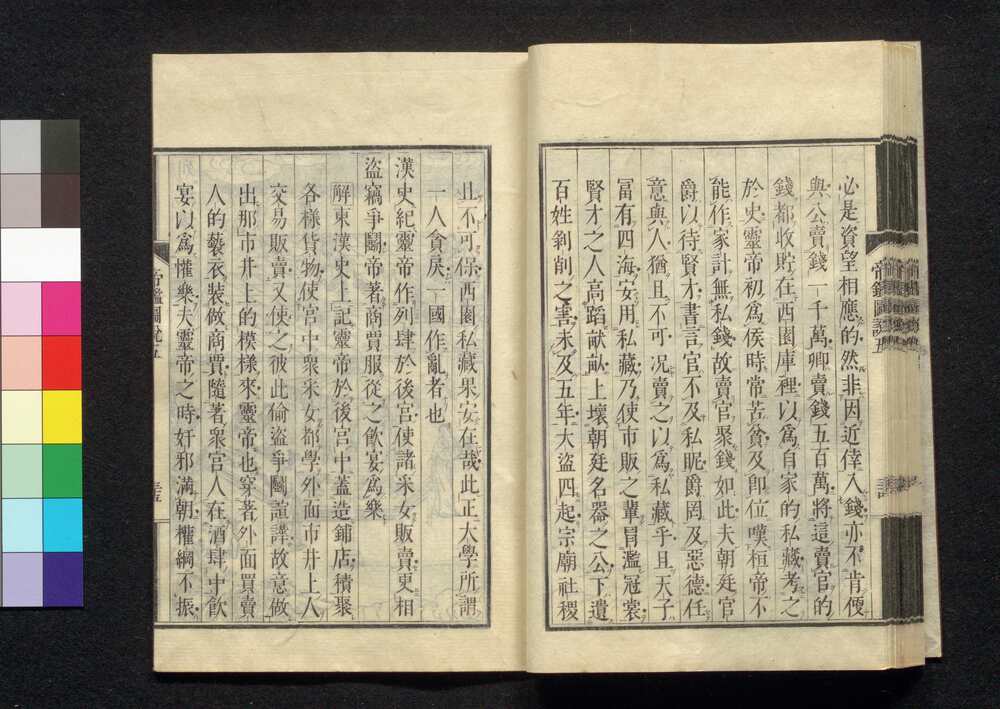 必是資望相應的然非因近倖入錢亦不肯便
與公賣錢一千萬卿賣錢五百萬將這賣官的
錢都收貯在西園庫裡以爲自家的私藏考之
於史靈帝初爲侯時常苦貧及卽位嘆桓帝不
能作家計無私錢故賣官聚錢如此夫朝廷官
爵以待賢才書言官不及私昵爵罔及惡德任
意與人猶且不可况賣之以爲私藏乎且天子
富有四海安用私藏乃使市販之輩冒濫冠裳
賢才之人高蹈畎畝上壞朝廷名器之公下遺
百姓剝削之害未及五年大盜四起宗廟社稷
且不可保西園私藏果安在哉此正大學所謂
一人貪戾一國作亂者也
漢史紀靈帝作列肆於後宮使諸采女販賣更相
盜竊爭鬭帝著商賈服從之飮宴爲樂
解東漢史上記靈帝於後宮中蓋造鋪店積聚
各樣貨物使宮中衆采女都學外面市井上人
交易販賣又使之彼此偷盜爭鬭諠譁故意做
出那市井上的模樣來靈帝也穿著外面買賣
人的褻衣裝做商賈隨著衆宮人在酒肆中飮
宴以爲懽樂夫靈帝之時奸邪滿朝權綱不振
帝鑑圖說五